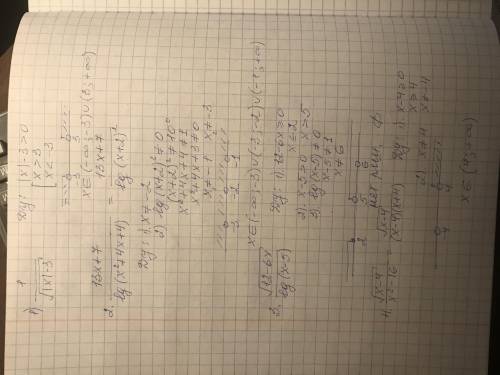 1) 1/√(|x|-3)
ОДУ: |x|-3>0
[ x>3
x<-3
-3 3
x∈(-∞;-3)∪(3;+∞)
2. (13x+7)/(lg(x²+4x+4)) = (13x+7)/(lg(x+2)²)
ОДУ: 1) x≠-2
2) lg(x+2)²≠0
(x+2)²≠10⁰
x²+4x+4≠1
x²+4x+3≠0
x≠-1 x≠-3
-3 -2 -1
x∈(-∞;-3)∪(-3;-2)∪(-1;+∞)
3. √(12-6x)/lg(x-5)
ОДУ: 1) 12-6x≥0
x≤2
2) x-5>0 x>5
3) lg(x-5)≠0
x-5≠1
x≠6
2 5 6
нет реш. ∅
4) √(x-4)/(x²-16) = √(x-4)/((x-4)(x+4))
ОДУ: 1) x-4≥0
x≥4
2) x≠4 x≠-4
-4 4
x∈(4;+∞)